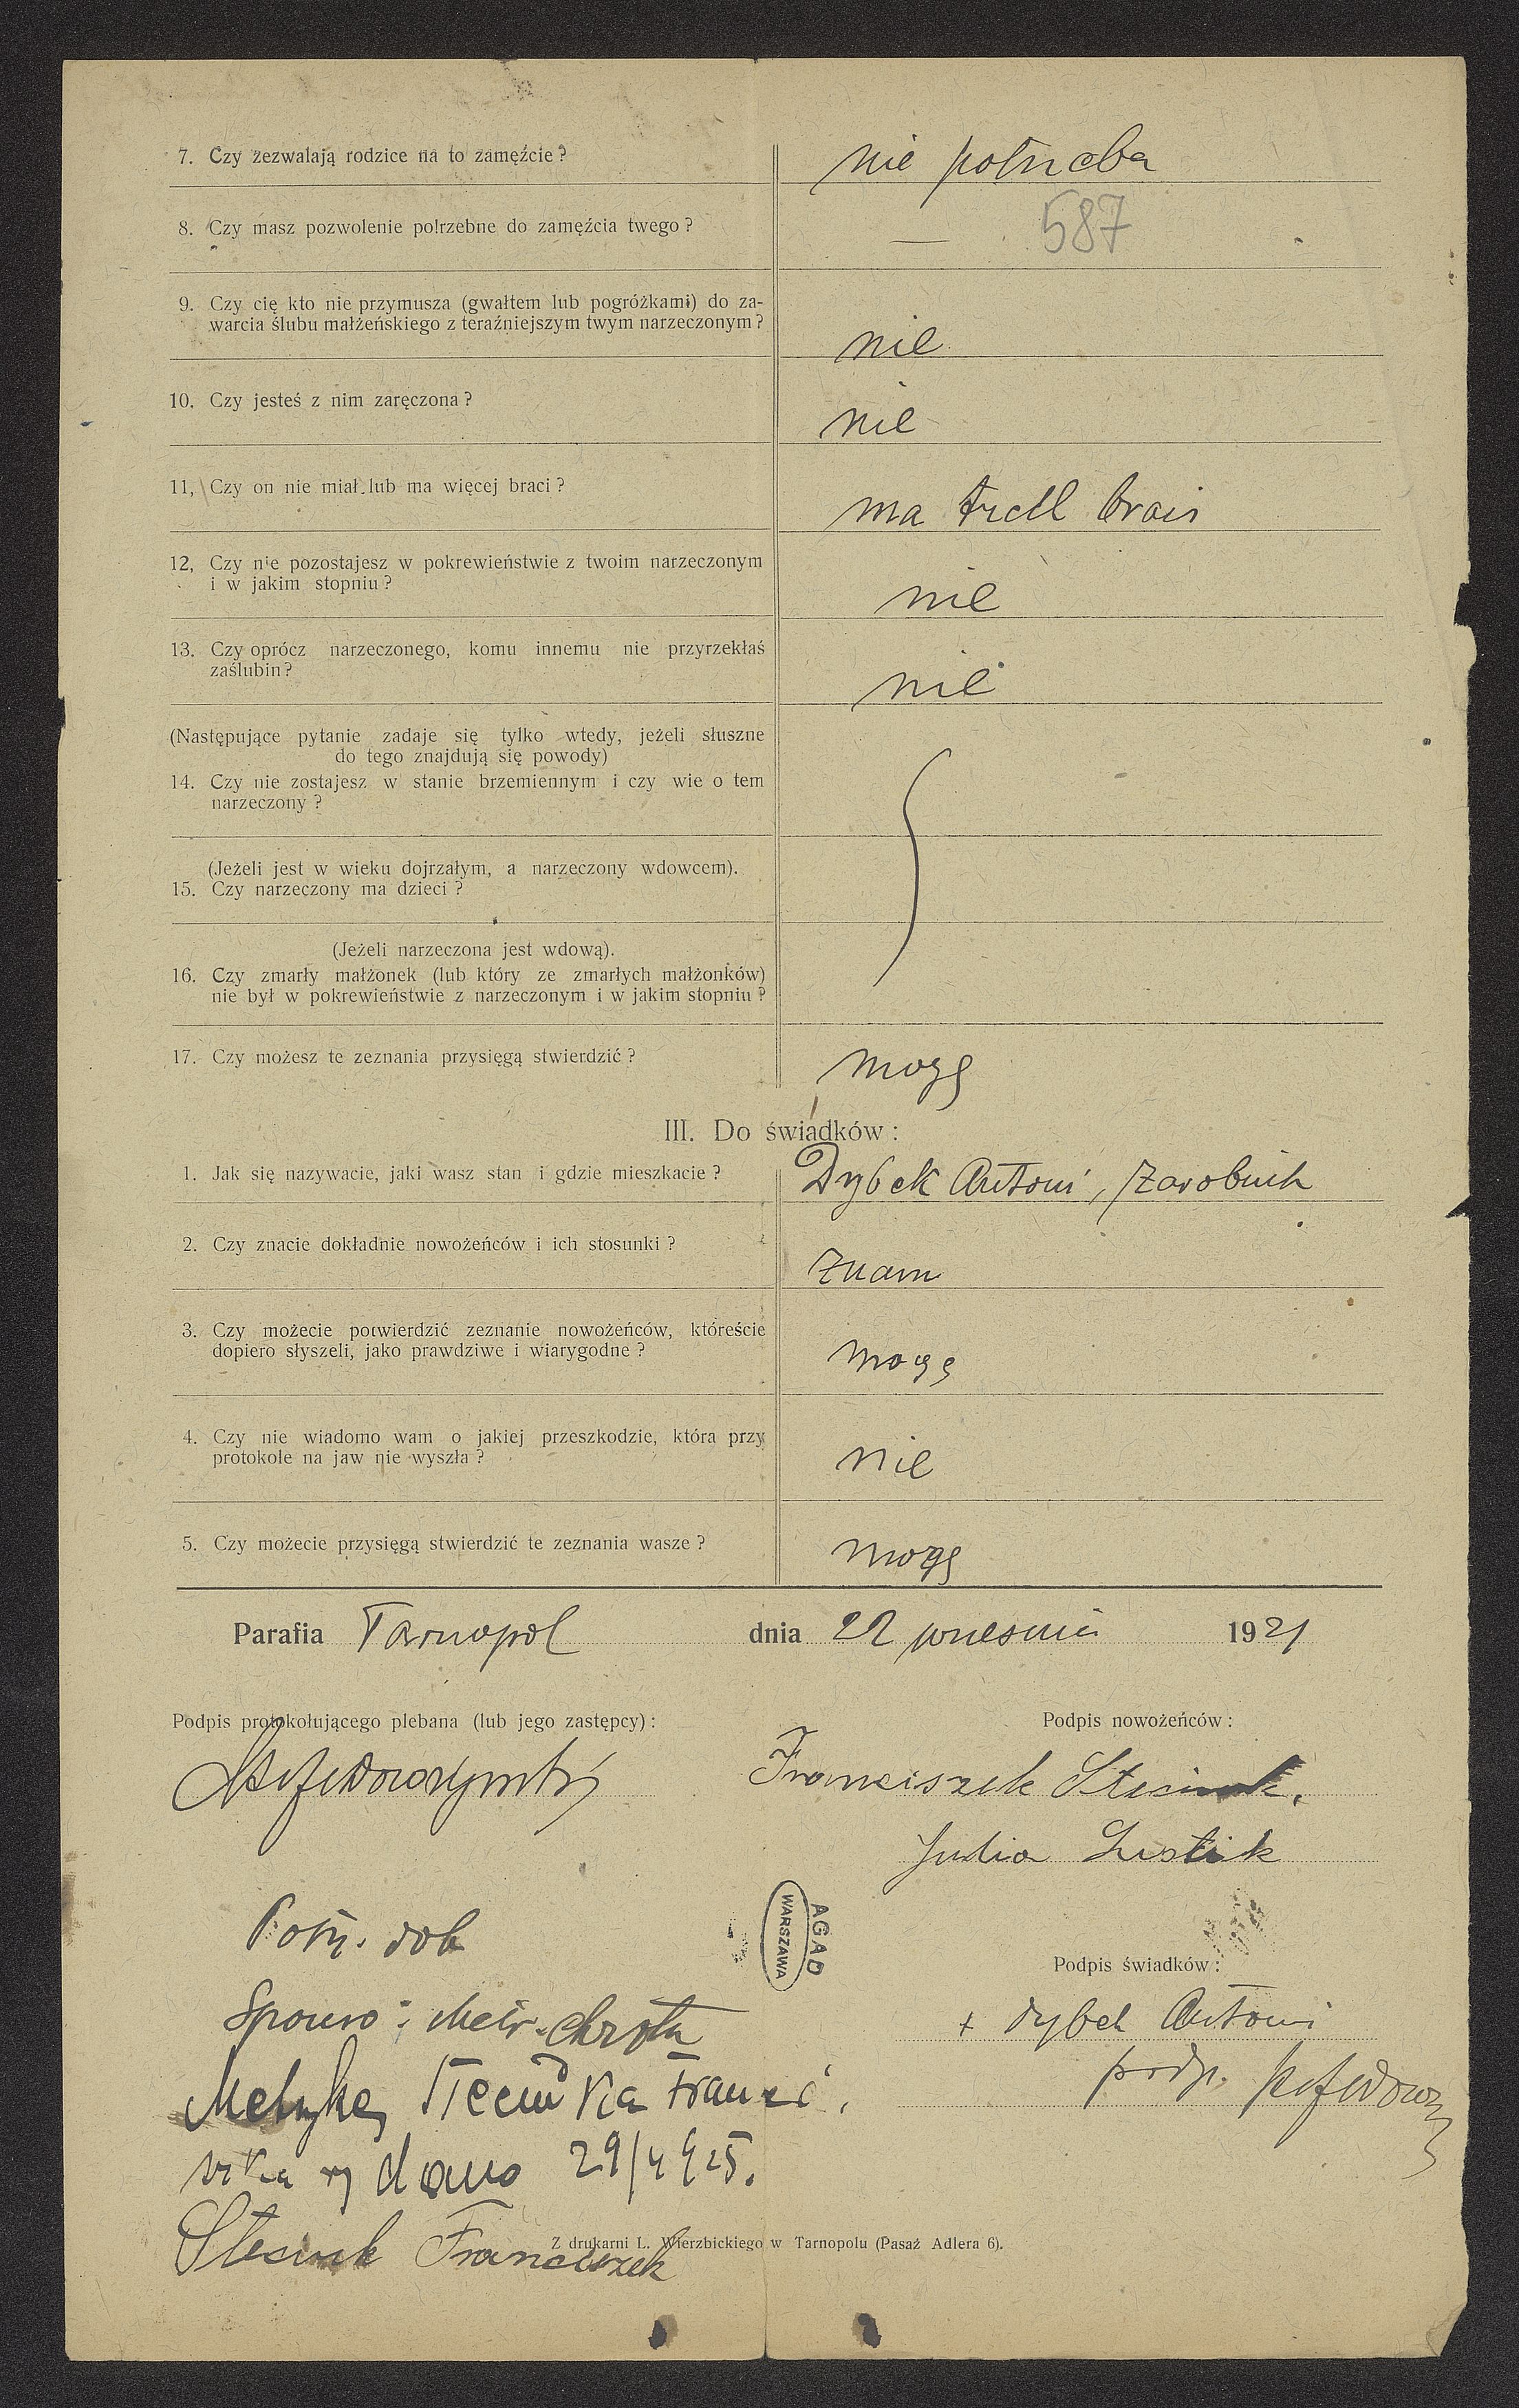 7. Czy zezwalają rodzice na to zamęźcie? nie potrzeba
587
8. Czy masz pozwolenie potrzebne do zamęźcia twego? —
9. Czy cię kto nie przymusza (gwałtem lub pogróżkami) do za-
warcia ślubu małżeńskiego z teraźniejszym twym narzeczonym? nie
10. Czy jesteś z nim zaręczona? nie
11, Czy on nie miał lub ma więcej braci? ma trzech braci
12, Czy nie pozostajesz w pokrewieństwie z twoim narzeczonym
i w jakim stopniu? nie
13. Czy oprócz narzeczonego, komu innemu nie przyrzekłaś
zaślubin? nie
(Następujące pytanie zadaje się tylko wtedy, jeżeli słuszne
do tego znajdują się powody)
14. Czy nie zostajesz w stanie brzemiennym i czy wie o tem
narzeczony?
(Jeżeli jest w wieku dojrzałym, a narzeczony wdowcem).
15. Czy narzeczony ma dzieci?
(Jeżeli narzeczona jest wdową).
16. Czy zmarły małżonek (lub który ze zmarłych małżonków)
nie był w pokrewieństwie z narzeczonym i w jakim stopniu?
17. Czy możesz te zeznania przysięgą stwierdzić? mogę
III. Do świadków:
1. Jak się nazywacie, jaki wasz stan i gdzie mieszkacie? Dybek Antoni, zarobnik
2. Czy znacie dokładnie nowożeńców i ich stosunki? znam
3. Czy możecie potwierdzić zeznanie nowożeńców, któreście
dopiero słyszeli, jako prawdziwe i wiarygodne? mogę
4. Czy nie wiadomo wam o jakiej przeszkodzie, która przy
protokole na jaw nie wyszła? nie
5. Czy możecie przysięgą stwierdzić te zeznania wasze? mogę
Parafia Tarnopol dnia 22 września 1921
Podpis protokołującego plebana (lub jego zastępcy): Podpis nowożeńców:
Franciszek Steciuk.
Julia
AGAD
WARSZAWA
Podpis świadków:
+ Dybek Antoni
podp.
Metr. chrztu
Metrykę Steciuka Franci
wydano 29/4 925.
Steciuk Franciszek
Z drukarni L. Wierzbickiego w Tarnopolu (Pasaż Adlera 6).